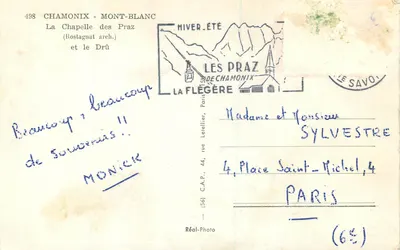 498 CHAMONIX - MONT-BLANC
La Chapelle des Praz
(Rostagnat arch.)
et le Drû
HIVER-ÉTÉ
LES PRAZ
DE CHAMONIX
LA FLÉGÈRE
TE SAVOIE
Beaucoup, beaucoup
de souvenirs !!
MONICK
(56) C.A.P., 44, rue Letellier, Paris
Réal-Photo
Madame et Monsieur
SYLVESTRE
4, Place Saint-Michel, 4
PARIS
(6e)